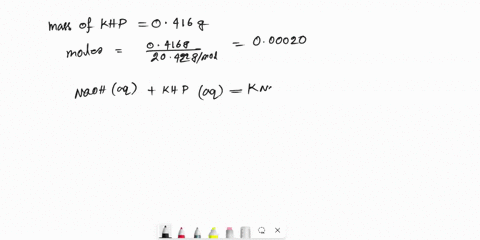 mass of KHP = 0.416 g
moles = 0.416g / 20.422g/mol = 0.00020
NaOH (aq) + KHP (aq) = KN